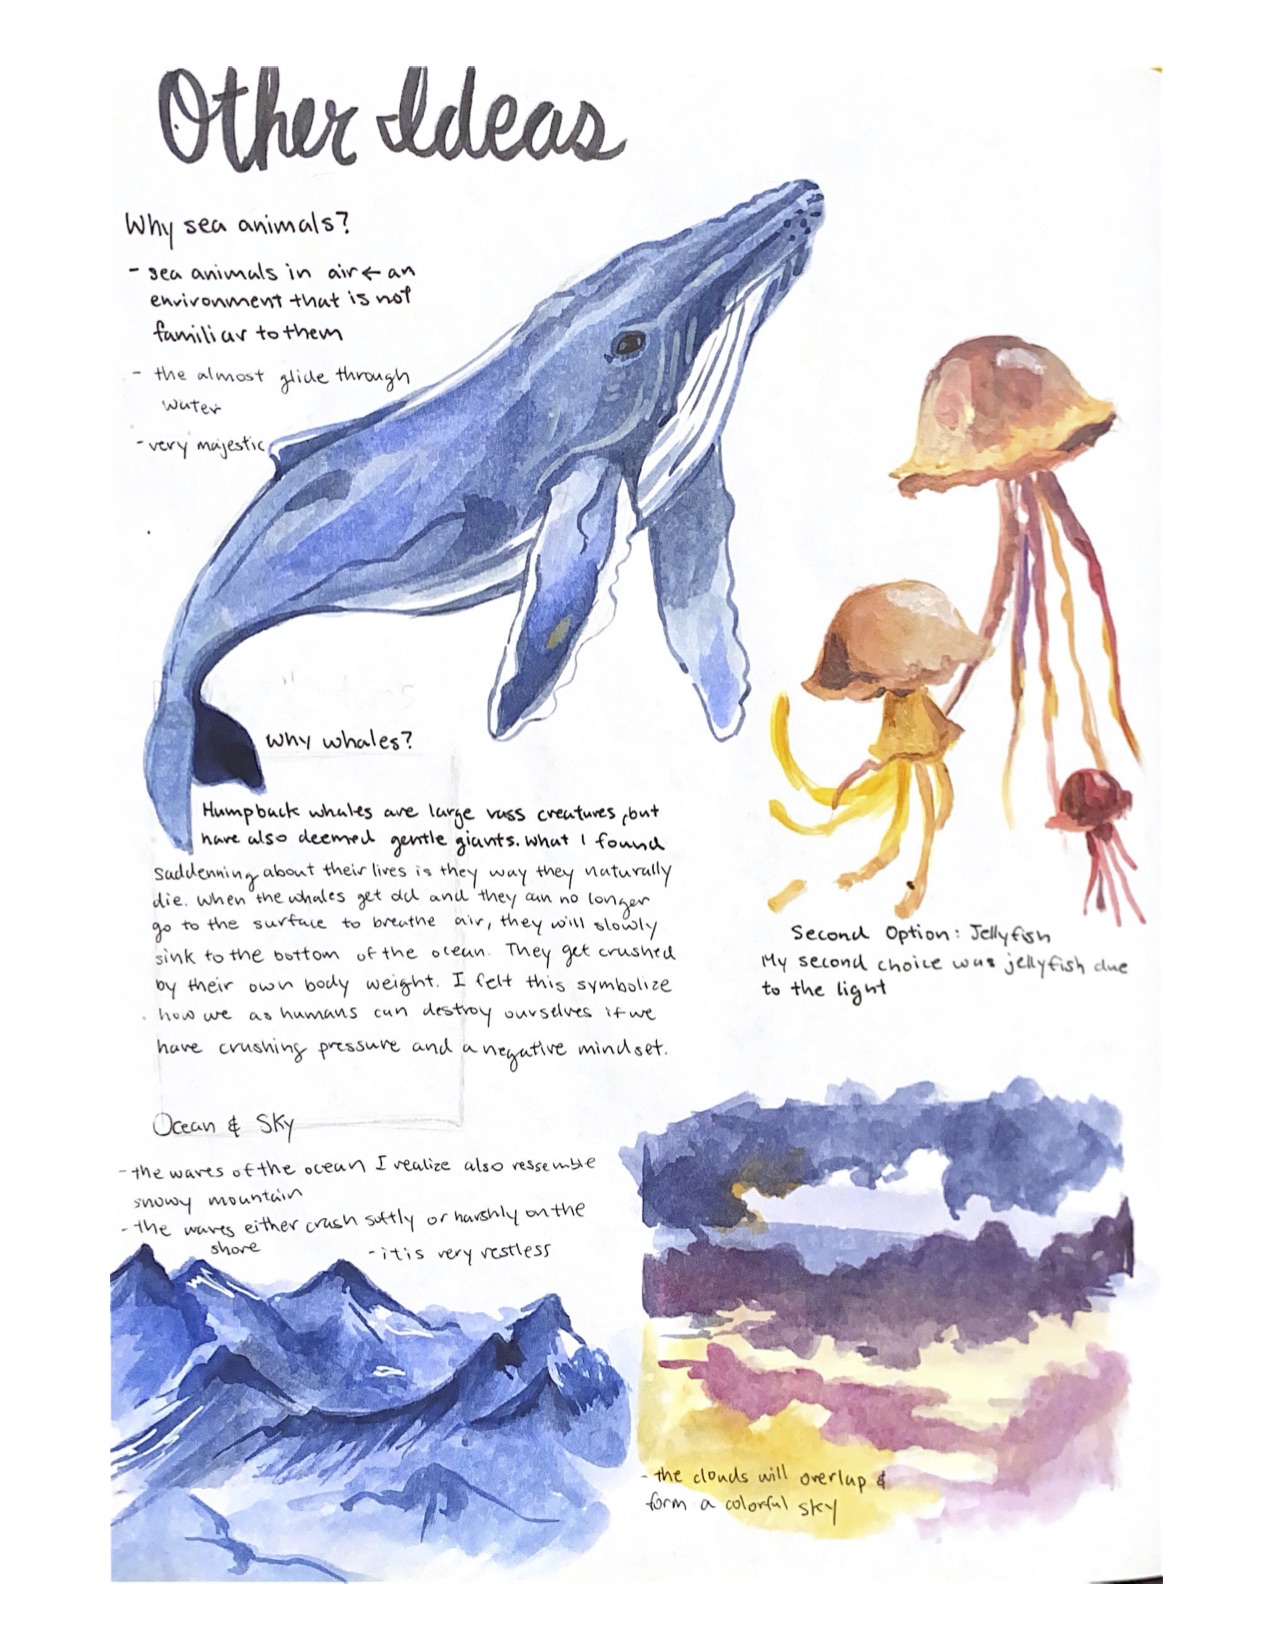 Other Ideas
Why sea animals?
- sea animals in air ← an
environment that is not
familiar to them
- the almost glide through
water
- very majestic
Why whales?
Humpback whales are large vass creatures, but
have also deemed gentle giants. What I found
saddenning about their lives is they way they naturally
die. When the whales get old and they can no longer
go to the surface to breathe air, they will slowly
sink to the bottom of the ocean. They get crushed
by their own body weight. I felt this symbolize
how we as humans can destroy ourselves if we
have crushing pressure and a negative mindset.
Second Option: Jellyfish
My second choice was jellyfish due
to the light
Ocean & Sky
- the waves of the ocean I realize also ressemble
snowy mountain
- the waves either crash softly or harshly on the
shore
- it is very restless
- the clouds will overlap &
form a colorful sky